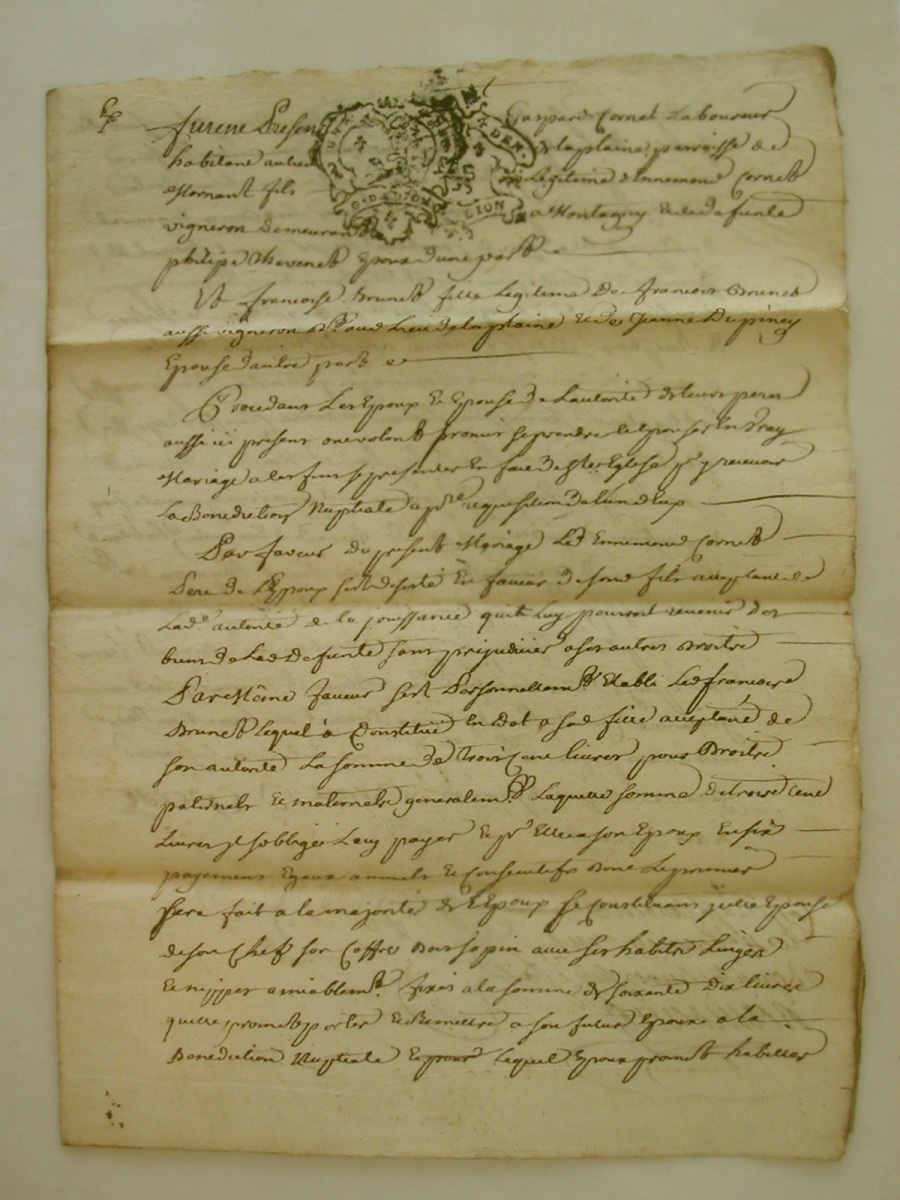 furent Presens Gaspard Cornet Laboureur
habitant au lieu de laplaine parroisse de
Mornant fils Legitime d'Ennemond Cornet
vigneron demeurant a Montagny et de defunte
philipe thevenet Epoux d'une part
Et francoise Brunet fille Legitime De francois Brunet
aussi vigneron dud lieu de laplaine et de Jeanne Dupiney
Epouse d'autre part
Procedans Les Epoux et Epouse de L'autorité de leurs peres
aussi ici presens ont promis se prendre et Epouser En vray
Mariage a ces fins se presenter En face de ste Eglise pr y recevoir
La Benediction Nuptiale a pre requisition de l'un d'Eux
Par faveur du present Mariage Led Ennemond Cornet
Pere de L'Epoux s'est desisté En faveur de sond fils acceptant de
Lade autorité de la jouissance qui luy pourroit revenir des
biens de Lad Defunte sans prejudicier a ses autres Droits
Par Même faveur s'est Personnellemt Etabli Led francois
Brunet Lequel à Constitué En dot a sad fille acceptante de
son autorité La somme de Trois Cent livres pour Droits
paternels et maternels generalemt Laquelle somme de trois Cent
Livres il s'oblige Luy payer et pr Elle a son Epoux En six
payemens Egaux annuels et Consecutifs dont Le premier
sera fait a la majorité de L'Epoux se Constituant ladite Epouse
de son Chef son Coffre bois sapin avec ses habits Linges
et nippes amiablemt fixés a la somme de soixante Dix livres
quelle promet porter et Remettre a son futur Epoux a la
Benediction Nuptiale Lequel Epoux promet habiller
G·D·LION
LION